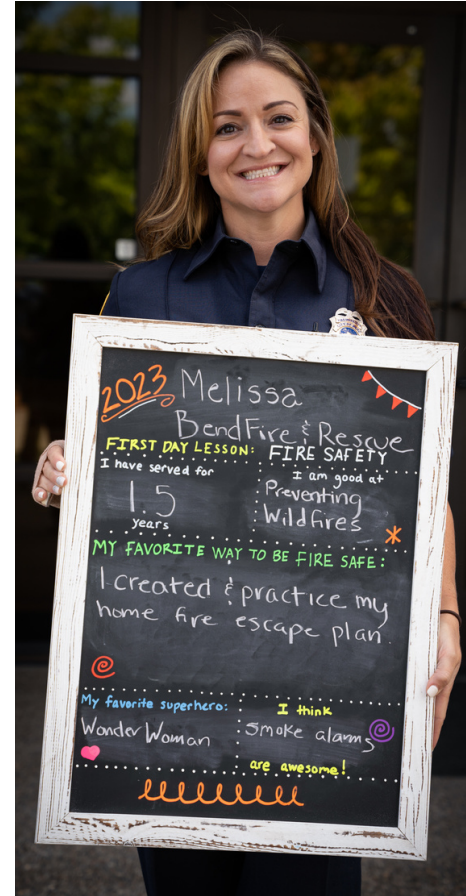 2023 Melissa
Bend Fire & Rescue
FIRST DAY LESSON: FIRE SAFETY
I have served for
1.5
years
I am good at
Preventing
Wildfires
MY FAVORITE WAY TO BE FIRE SAFE:
I created & practice my
home fire escape plan.
My favorite superhero:
Wonder Woman
I think
smoke alarms
are awesome!